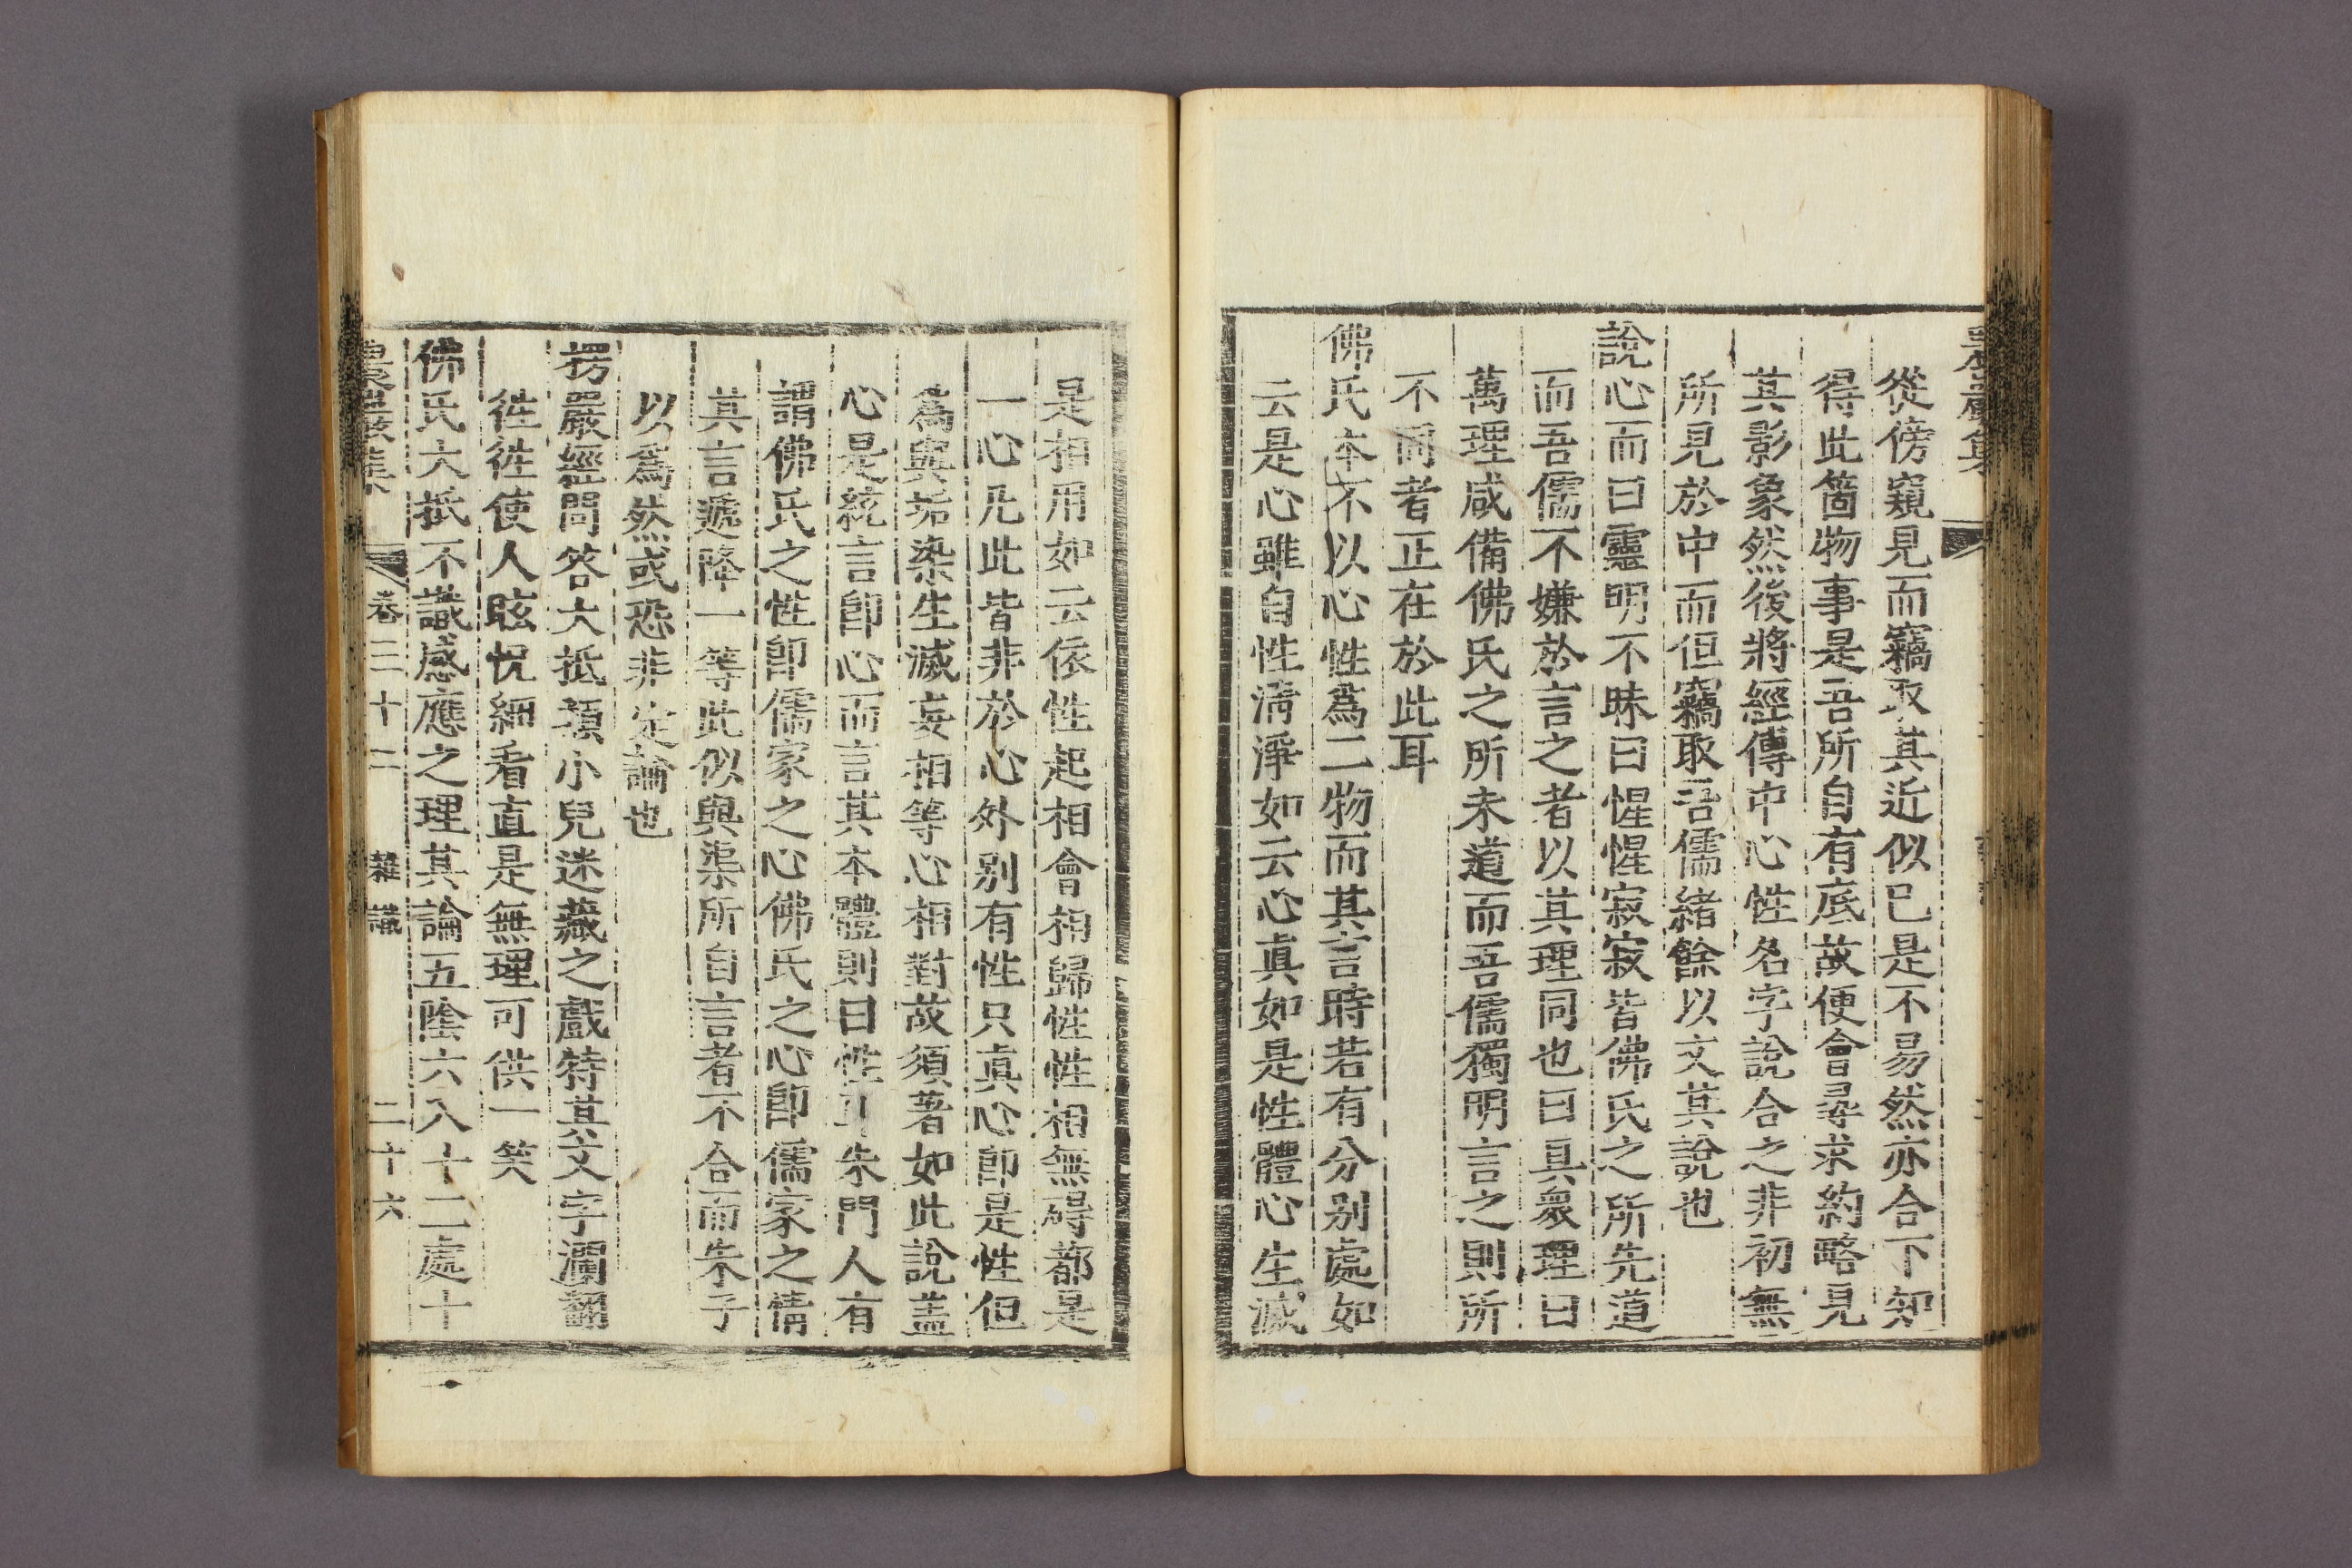 從傍窺見而竊取其近似已是不易然亦合下知
得此箇物事是吾所自有底故便會尋求約略見
其影象然後將經傳中心性名字說合之非初無
所見於中而但竊取吾儒緖餘以文其說也
說心而曰靈明不昧曰惺惺寂寂皆佛氏之所先道
而吾儒不嫌於言之者以其理同也曰具衆理曰
萬理咸備佛氏之所未道而吾儒獨明言之則所
不同者正在於此耳
佛氏本不以心性爲二物而其言時若有分別處如
云是心雖自性淸淨如云心眞如是性體心生滅
是相用如云依性起相會相歸性性相無碍都是
一心凡此皆非於心外別有性只眞心卽是性但
爲與垢染生滅妄相等心相對故須著如此說盖
心是統言卽心而言其本體則曰性耳朱門人有
謂佛氏之性卽儒家之心佛氏之心卽儒家之情
其言遞降一等此似與渠所自言者不合而朱子
以爲然或恐非定論也
楞嚴經問答大抵類小兒迷藏之戲特其文字瀾翻
徃徃使人眩怳細看直是無理可供一笑
佛氏大抵不識感應之理其論五陰六入十二處十
農巖集 卷三十二 雜識 二十六